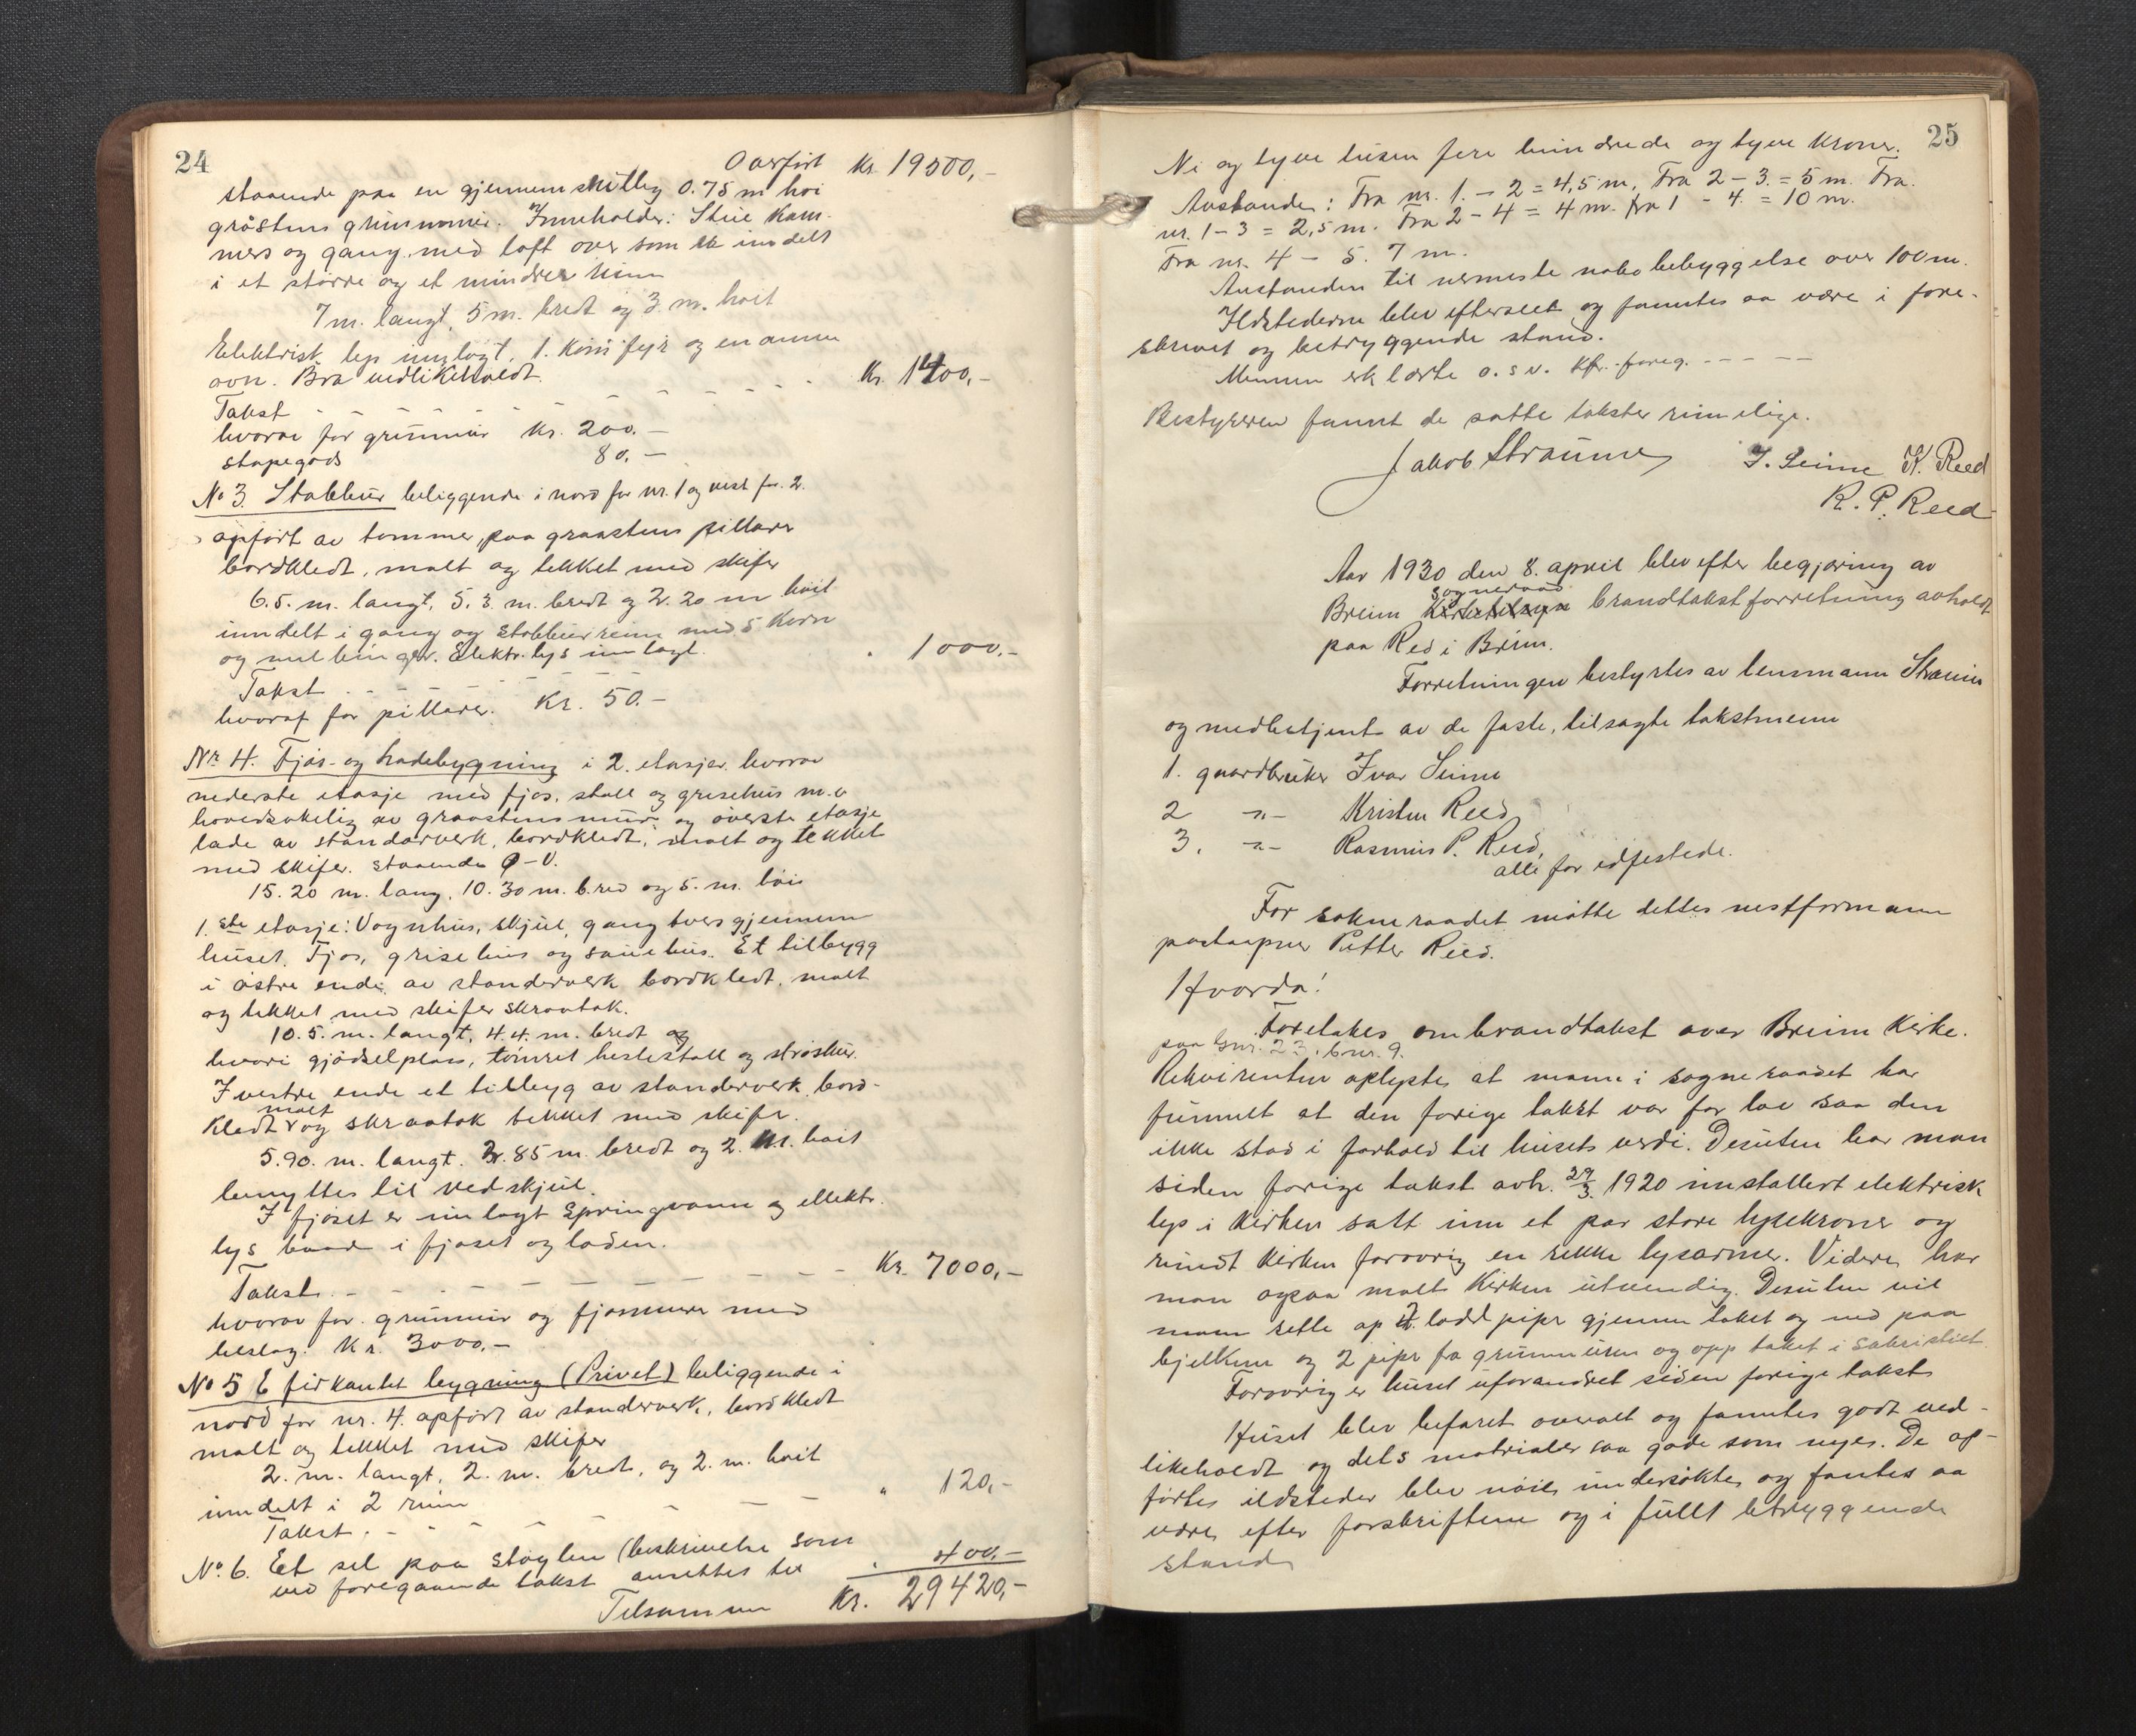 24
Overført Kr. 19500,-
staaende paa en gjennemsnitlig 0.75 m høi
gråstens grunnmur. Inneholder: Stue Kam-
mers og gang, med loft over som er inndelt
i et større og et mindre rum
7 m. langt, 5 m. bredt og 3. m. høit
Elektrisk lys innlagt, 1. Komfyr og en annen
ovn. Bra vedlikeholdt.
Takst - - - - - - Kr. 1400,-
hvorav for grunmur Kr. 200.-
støpegods 80.-
No 3. Stabbur beliggende i nord for nr. 1 og vest for 2.
opført av tømmer, paa graastens pillarer
bordkledt, malt og tekket med skifer
6.5. m. langt, 5.3. m. bredt og 2.20 m høit
inndelt i gang og stabbursrum med 5 Korn
og melbinger. Elektr. lys innlagt.
Takst - - - - - " 1000.-
hvoraf for pillarer. Kr. 50.-
Nr 4. Fjøs- og ladebygning i 2. etasjer hvorav
nederste etasje med fjøs, stall og grisehus m.v
hovedsakelig av graastensmur og øverste etasje
lade av standarverk, bordkledt, malt og tekket
med skifer. staaende Ø-V.
15.20 m. lang, 10.30 m. bred og 5. m. høi
1.ste etasje: Vognhus, skjul, gang tvers gjennem
huset. Fjøs, grisehus og sauehus. Et tilbygg
i østre ende av standerverk bordkledt, malt
og tekket med skifer skraatak.
10.5. m. langt, 4.4. m. bredt og
hvori gjødselplass, tømret hestestall og strøskur.
I vestre ende et tilbyg av standerverk, bord-
kledt malt og skraatak tekket med skifer.
5.90. m. langt. 3.85 m. bredt og 2. m. høit
benyttes til vedskjul.
I fjøset er innlagt springvann og ellektr.
lys baade i fjøset og laden.
Takst. - - - - - - Kr. 7000,-
hvorav for grunmur og fjøsmurer med
beslag. Kr. 3000,-
No 5 E firkantet bygning (Privet) beliggende i
nord for nr. 4. opført av standerverk, bordkledt
malt og tekket med skifer
2. m. langt, 2. m. bredt, og 2. m. høit
inndelt i 2 rum
Takst. - - - - - " 120,-
No 6. Et sel paa støylen (beskrivelse som
ved foregaaende takst ansettes til " 400.-
Tilsammen Kr. 29420,-
25
Ni og tyve tusen fire hundrede og tyve Kroner.
Avstander: Fra nr. 1. - 2 = 4,5 m. Fra 2 - 3. = 5 m. Fra
nr. 1 - 3 = 2,5 m. Fra 2 - 4 = 4 m. fra 1 - 4. = 10 m.
Fra nr. 4 - 5. 7 m.
Avstanden til nermeste nabobebyggelse over 100 m.
Ildstederne blev efterseet og fanntes aa være i fore-
skrevet og betryggende stand.
Mennen erklærte o.s.v. kfr. foreg. - - - - -
Bestyreren fannt de satte takster rimelige.
Jakob Straume I. Seime K. Reed
R. P. Reed
Aar 1930 den 8. april blev efter begjæring av
sogneraad
Breim brandtakstforretning avholdt
paa Red i Breim.
Forretningen bestyrtes av lensmann Straume
og medbetjent av de faste, tilsagte takstmenn
1. gaardbruker Ivar Seime
2 -"- Kristen Reed
3. -"- Rasmus P. Reed,
alle før edfestede.
For sokneraadet møtte dettes nestformann
postaapner Petter Reed.
Hvorda!
Foretakes ombrandtakst over Breim Kirke.
paa Gnr. 23, bnr. 9.
Rekvirenten oplyste, at mann i sogneraadet har
funnet at den forige takst var for lav saa den
ikke stod i forhold til husets verdi. Desuten har man
siden forige takst avh. 29/3. 1920 innstallert elektrisk
lys i kirken satt inn et par store lysekroner og
rundt kirken forøvrig en rekke lysarmer. Videre, har
man ogsaa malt Kirken utvendig. Desuten vil
mann sette op 2. loddpiper gjennem taket og ned paa
bjelkene og 2 piper fra grunnmuren og opp taket i sakristiet.
Forøvrig er huset uforandret siden forige takst.
Huset blev befaret overalt og fanntes godt ved-
likeholdt og dets matrialer saa gode som nyes. De op-
førtes ildsteder blev nøie, undersøkte, og fantes aa
være, efter forskriftene og i fullt betryggende
stand